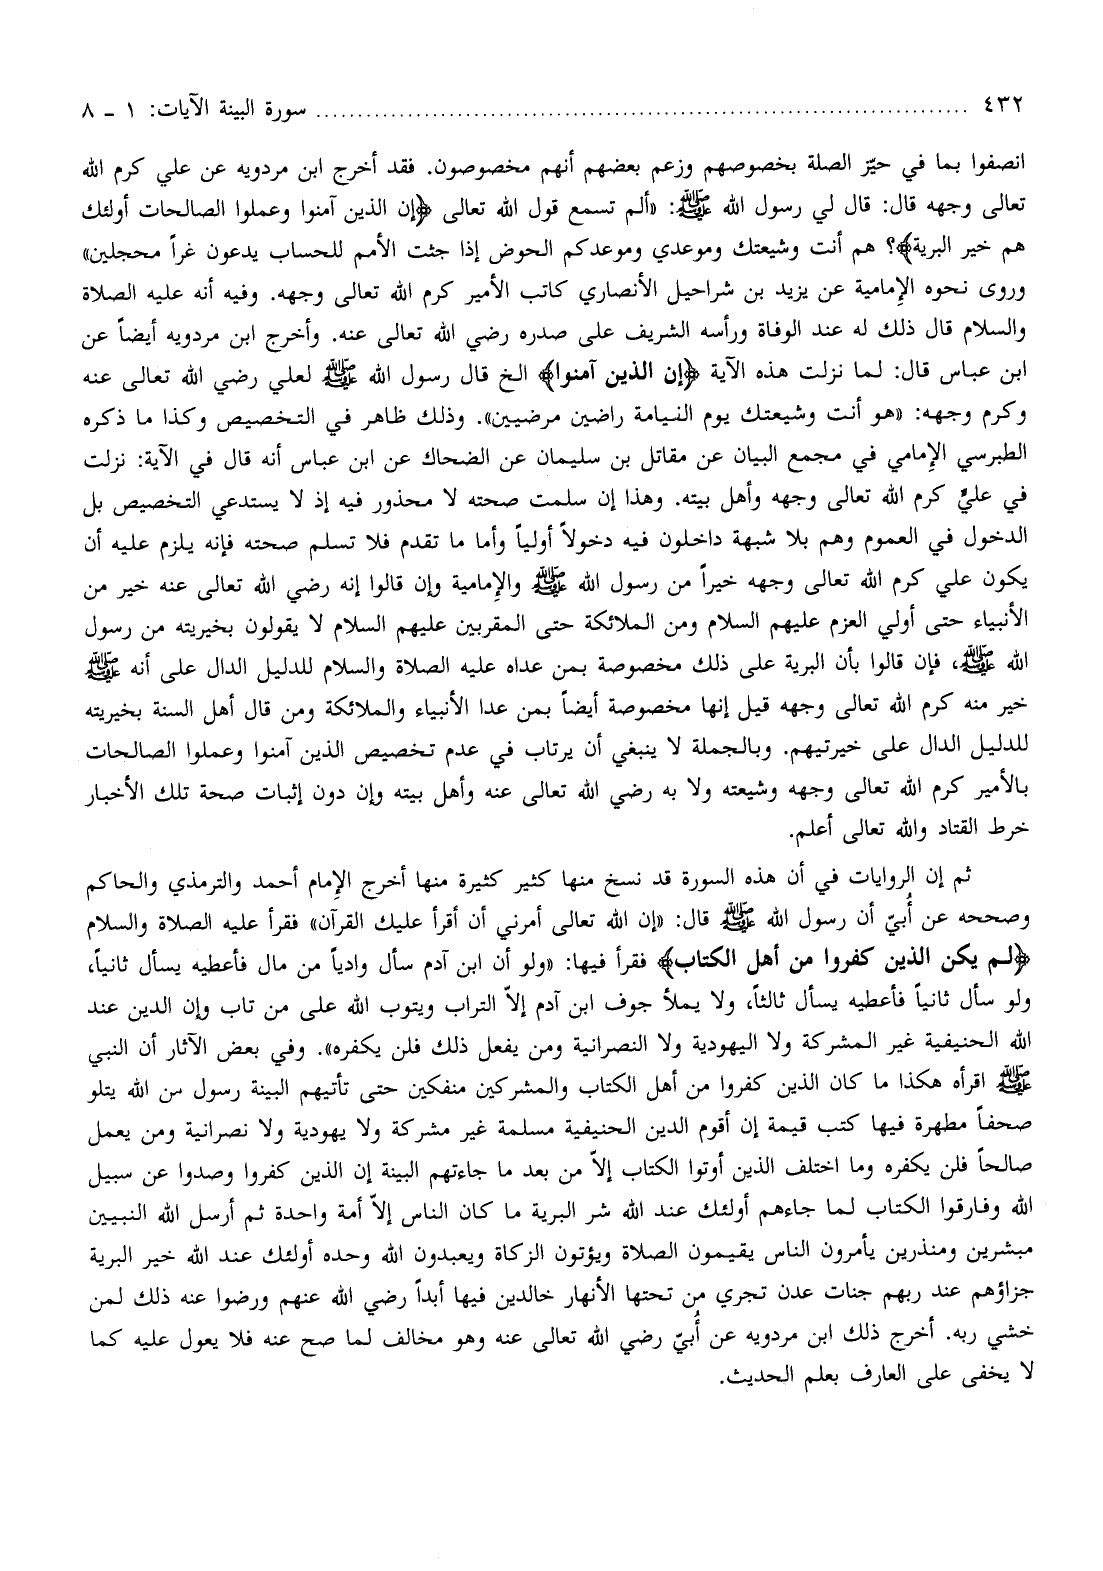 ٤٣٢ ........................................ سورة البينة الآيات: ١ ـ ٨
اتصفوا بما في حيّز الصلة بخصوصهم وزعم بعضهم أنهم مخصوصون. فقد أخرج ابن مردويه عن علي كرم الله
تعالى وجهه قال: قال لي رسول الله ﷺ: «ألم تسمع قول الله تعالى ﴿إن الذين آمنوا وعملوا الصالحات أولئك
هم خير البرية﴾؟ هم أنت وشيعتك وموعدي وموعدكم الحوض إذا جئت الأمم للحساب يدعون غراً محجلين»
وروى نحوه الإمامية عن يزيد بن شراحيل الأنصاري كاتب الأمير كرم الله تعالى وجهه. وفيه أنه عليه الصلاة
والسلام قال ذلك له عند الوفاة ورأسه الشريف على صدره رضي الله تعالى عنه. وأخرج ابن مردويه أيضاً عن
ابن عباس قال: لما نزلت هذه الآية ﴿إن الذين آمنوا﴾ الخ قال رسول الله ﷺ لعلي رضي الله تعالى عنه
وكرم وجهه: «هو أنت وشيعتك يوم القيامة راضين مرضيين». وذلك ظاهر في التخصيص وكذا ما ذكره
الطبرسي الإمامي في مجمع البيان عن مقاتل بن سليمان عن الضحاك عن ابن عباس أنه قال في الآية: نزلت
في عليّ كرم الله تعالى وجهه وأهل بيته. وهذا إن سلمت صحته لا محذور فيه إذ لا يستدعي التخصيص بل
الدخول في العموم وهم بلا شبهة داخلون فيه دخولاً أولياً وأما ما تقدم فلا تسلم صحته فإنه يلزم عليه أن
يكون علي كرم الله تعالى وجهه خيراً من رسول الله ﷺ والإمامية وإن قالوا إنه رضي الله تعالى عنه خير من
الأنبياء حتى أولي العزم عليهم السلام ومن الملائكة حتى المقربين عليهم السلام لا يقولون بخيريته من رسول
الله ﷺ، فإن قالوا بأن البرية على ذلك مخصوصة بمن عداه عليه الصلاة والسلام للدليل الدال على أنه ﷺ
خير منه كرم الله تعالى وجهه قيل إنها مخصوصة أيضاً بمن عدا الأنبياء والملائكة ومن قال أهل السنة بخيريته
للدليل الدال على خيرتيهم. وبالجملة لا ينبغي أن يرتاب في عدم تخصيص الذين آمنوا وعملوا الصالحات
بالأمير كرم الله تعالى وجهه وشيعته ولا به رضي الله تعالى عنه وأهل بيته وإن دون إثبات صحة تلك الأخبار
خرط القتاد والله تعالى أعلم.
ثم إن الروايات في أن هذه السورة قد نسخ منها كثير كثيرة منها أخرج الإمام أحمد والترمذي والحاكم
وصححه عن أُبيّ أن رسول الله ﷺ قال: «إن الله تعالى أمرني أن أقرأ عليك القرآن» فقرأ عليه الصلاة والسلام
﴿لم يكن الذين كفروا من أهل الكتاب﴾ فقرأ فيها: «ولو أن ابن آدم سأل وادياً من مال فأعطيه يسأل ثانياً،
ولو سأل ثانياً فأعطيه يسأل ثالثاً، ولا يملأ جوف ابن آدم إلاّ التراب ويتوب الله على من تاب وإن الدين عند
الله الحنيفية غير المشركة ولا اليهودية ولا النصرانية ومن يفعل ذلك فلن يكفره». وفي بعض الآثار أن النبي
ﷺ اقرأه هكذا ما كان الذين كفروا من أهل الكتاب والمشركين منفكين حتى تأتيهم البينة رسول من الله يتلو
صحفاً مطهرة فيها كتب قيمة إن أقوم الدين الحنيفية مسلمة غير مشركة ولا يهودية ولا نصرانية ومن يعمل
صالحاً فلن يكفره وما اختلف الذين أوتوا الكتاب إلاّ من بعد ما جاءتهم البينة إن الذين كفروا وصدوا عن سبيل
الله وفارقوا الكتاب لما جاءهم أولئك عند الله شر البرية ما كان الناس إلاّ أمة واحدة ثم أرسل الله النبيين
مبشرين ومنذرين يأمرون الناس يقيمون الصلاة ويؤتون الزكاة ويعبدون الله وحده أولئك عند الله خير البرية
جزاؤهم عند ربهم جنات عدن تجري من تحتها الأنهار خالدين فيها أبداً رضي الله عنهم ورضوا عنه ذلك لمن
خشي ربه. أخرج ذلك ابن مردويه عن أُبيّ رضي الله تعالى عنه وهو مخالف لما صح عنه فلا يعول عليه كما
لا يخفى على العارف بعلم الحديث.